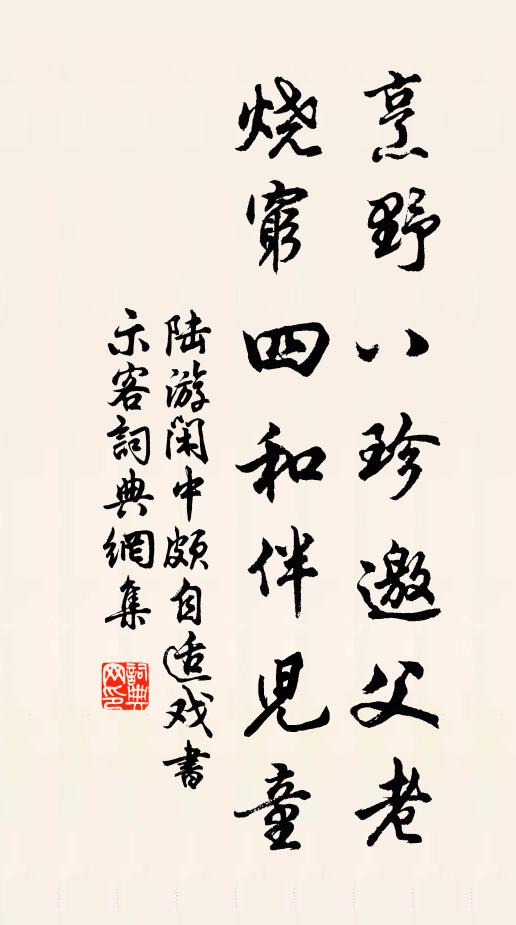 烹野八珍邀父老
烧穷四和伴児童
陆游闲中颇自适戏书
示客詞典網集
詞典网印